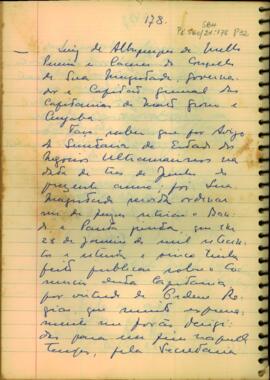 178.
— Luiz de Albuquerque de Mello
Pereira e Caceres do Conselho
de Sua Magestade, Governa-
dor e Capitão general das
Capitanias de Matto Grosso e
Cuyabá.
Faço saber que por Aviso
da Secretaria de Estado dos
Negocios Ultramarinos na
data de tres de Junho do
presente anno; foi Sua
Magestade servida ordenar
me de fazer o Ban-
do e Pauta junta, que em
23 de Janeiro de mil setecen-
tos e setenta e cinco tinha
feito publicar sobre o Co-
mercio desta Capitania
por virtude de Ordens Re-
gias, que muito expressa-
mente me forão dirigi-
das para um fim naquelle
tempo, pela Secretaria